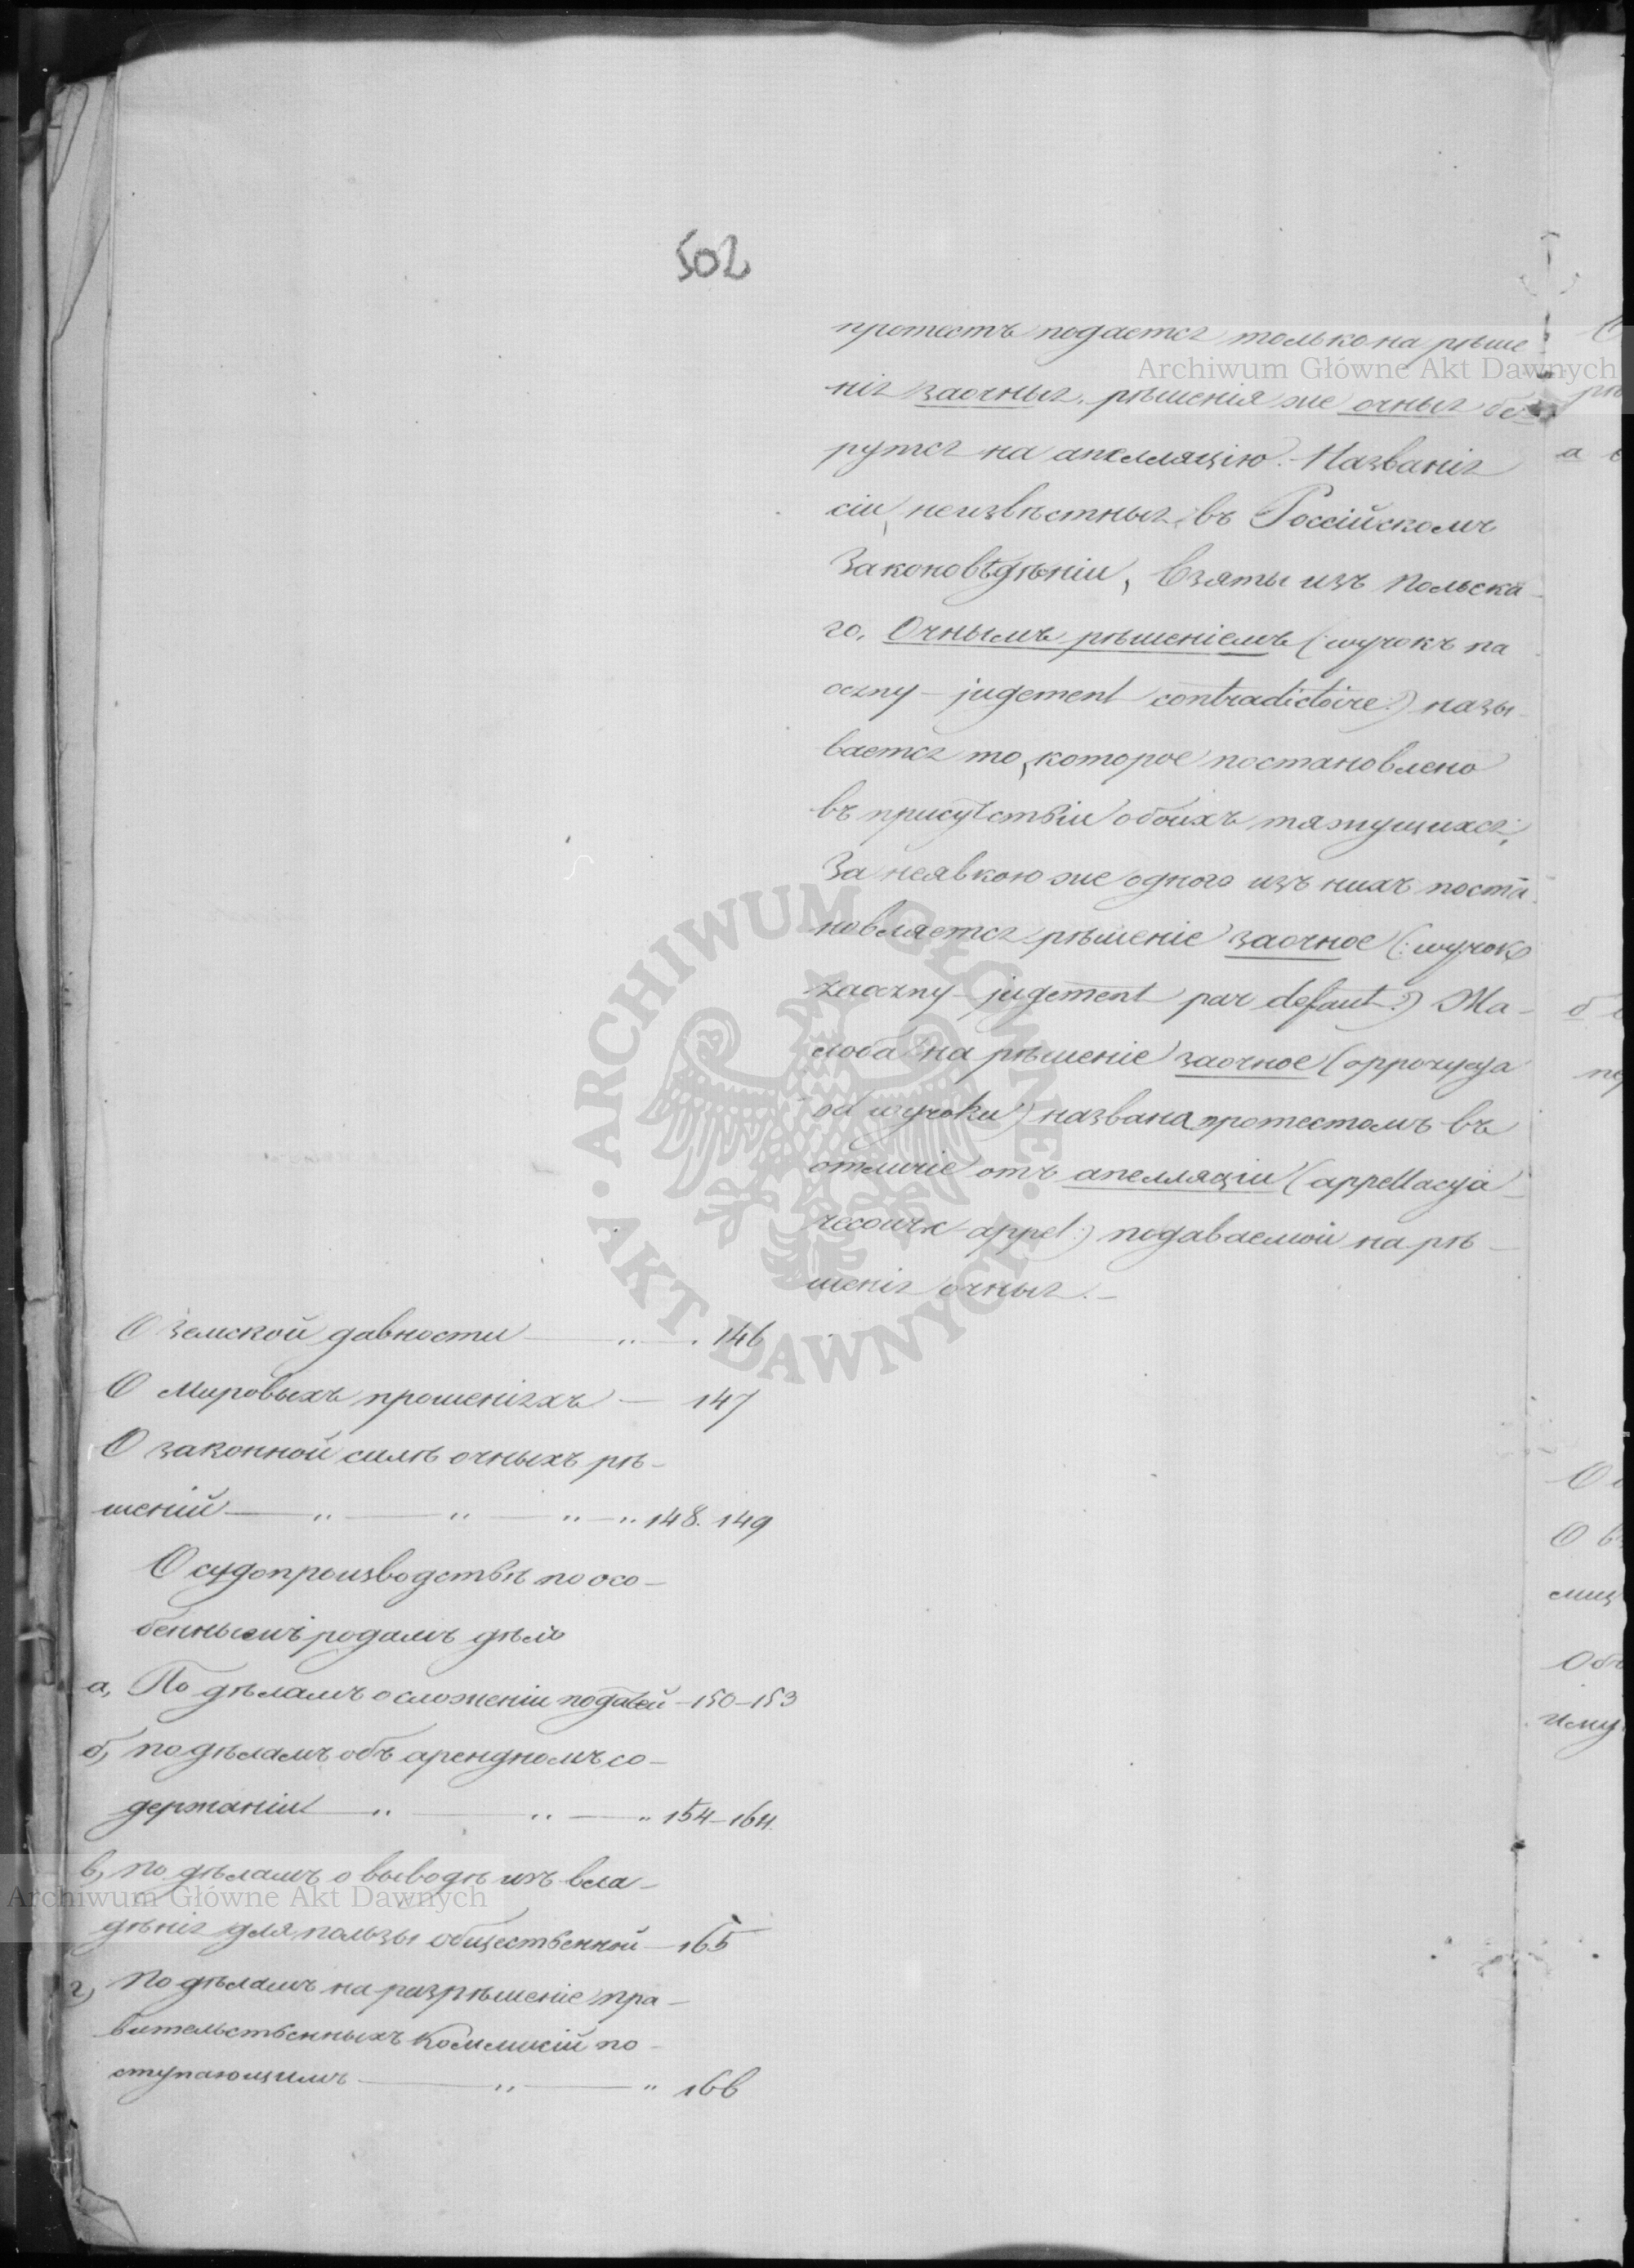 502
протестъ подается только на рѣше
нія заочныя, рѣшенія же очныя бе
рутся на апелляцію. Названія
сіи, неизвѣстныя въ Россійскомъ
Законовѣдѣніи, взяты изъ Польска-
го. Очнымъ рѣшеніемъ (: wyrok na
oczny – jugement contradictoire :) назы-
вается то, которое постановлено
въ присутствіи обоихъ тяжущихся;
За неявкою же одного изъ нихъ поста-
новляется рѣшеніе заочное (: wyrok
zaoczny – jugement par defaut :) Жа-
лоба на рѣшеніе заочное (oppozycya
od wyroku) названа протестомъ въ
отличіе отъ апелляціи (appellacya
recours appel :) подаваемой на рѣ-
шенія очныя. –
О Земской давности — „ — . 146
О Мировыхъ прошеніяхъ — 147
О законной силѣ очныхъ рѣ-
шеній — „ — „ — „ – „ 148. 149
О судопроизводствѣ по осо-
беннымъ родамъ дѣлъ
а, По дѣламъ о сложеніи податей – 150–153
б, по дѣламъ объ арендномъ со-
держаніи — „ — „ — „ 154–164.
в, по дѣламъ о выводѣ изъ вла-
дѣнія для пользы общественной — 165
г, По дѣламъ на разрѣшеніе пра-
вительственныхъ Коммисій по-
ступающимъ — „ — „ 166
Archiwum Główne Akt Dawnych
Archiwum Główne Akt Dawnych
ARCHIWUM GŁÓWNE • AKT DAWNYCH •